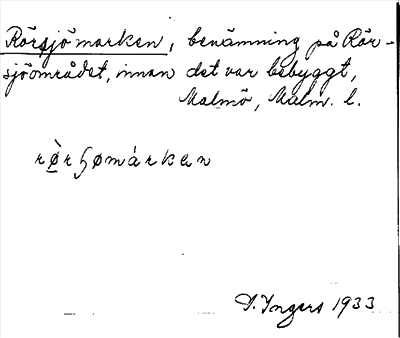 Rörsjömarken, benämning på Rör-
sjöområdet, innan det var bebyggt,
Malmö, Malm. l.
rö̀rɧømàrkan
Ingers 1933